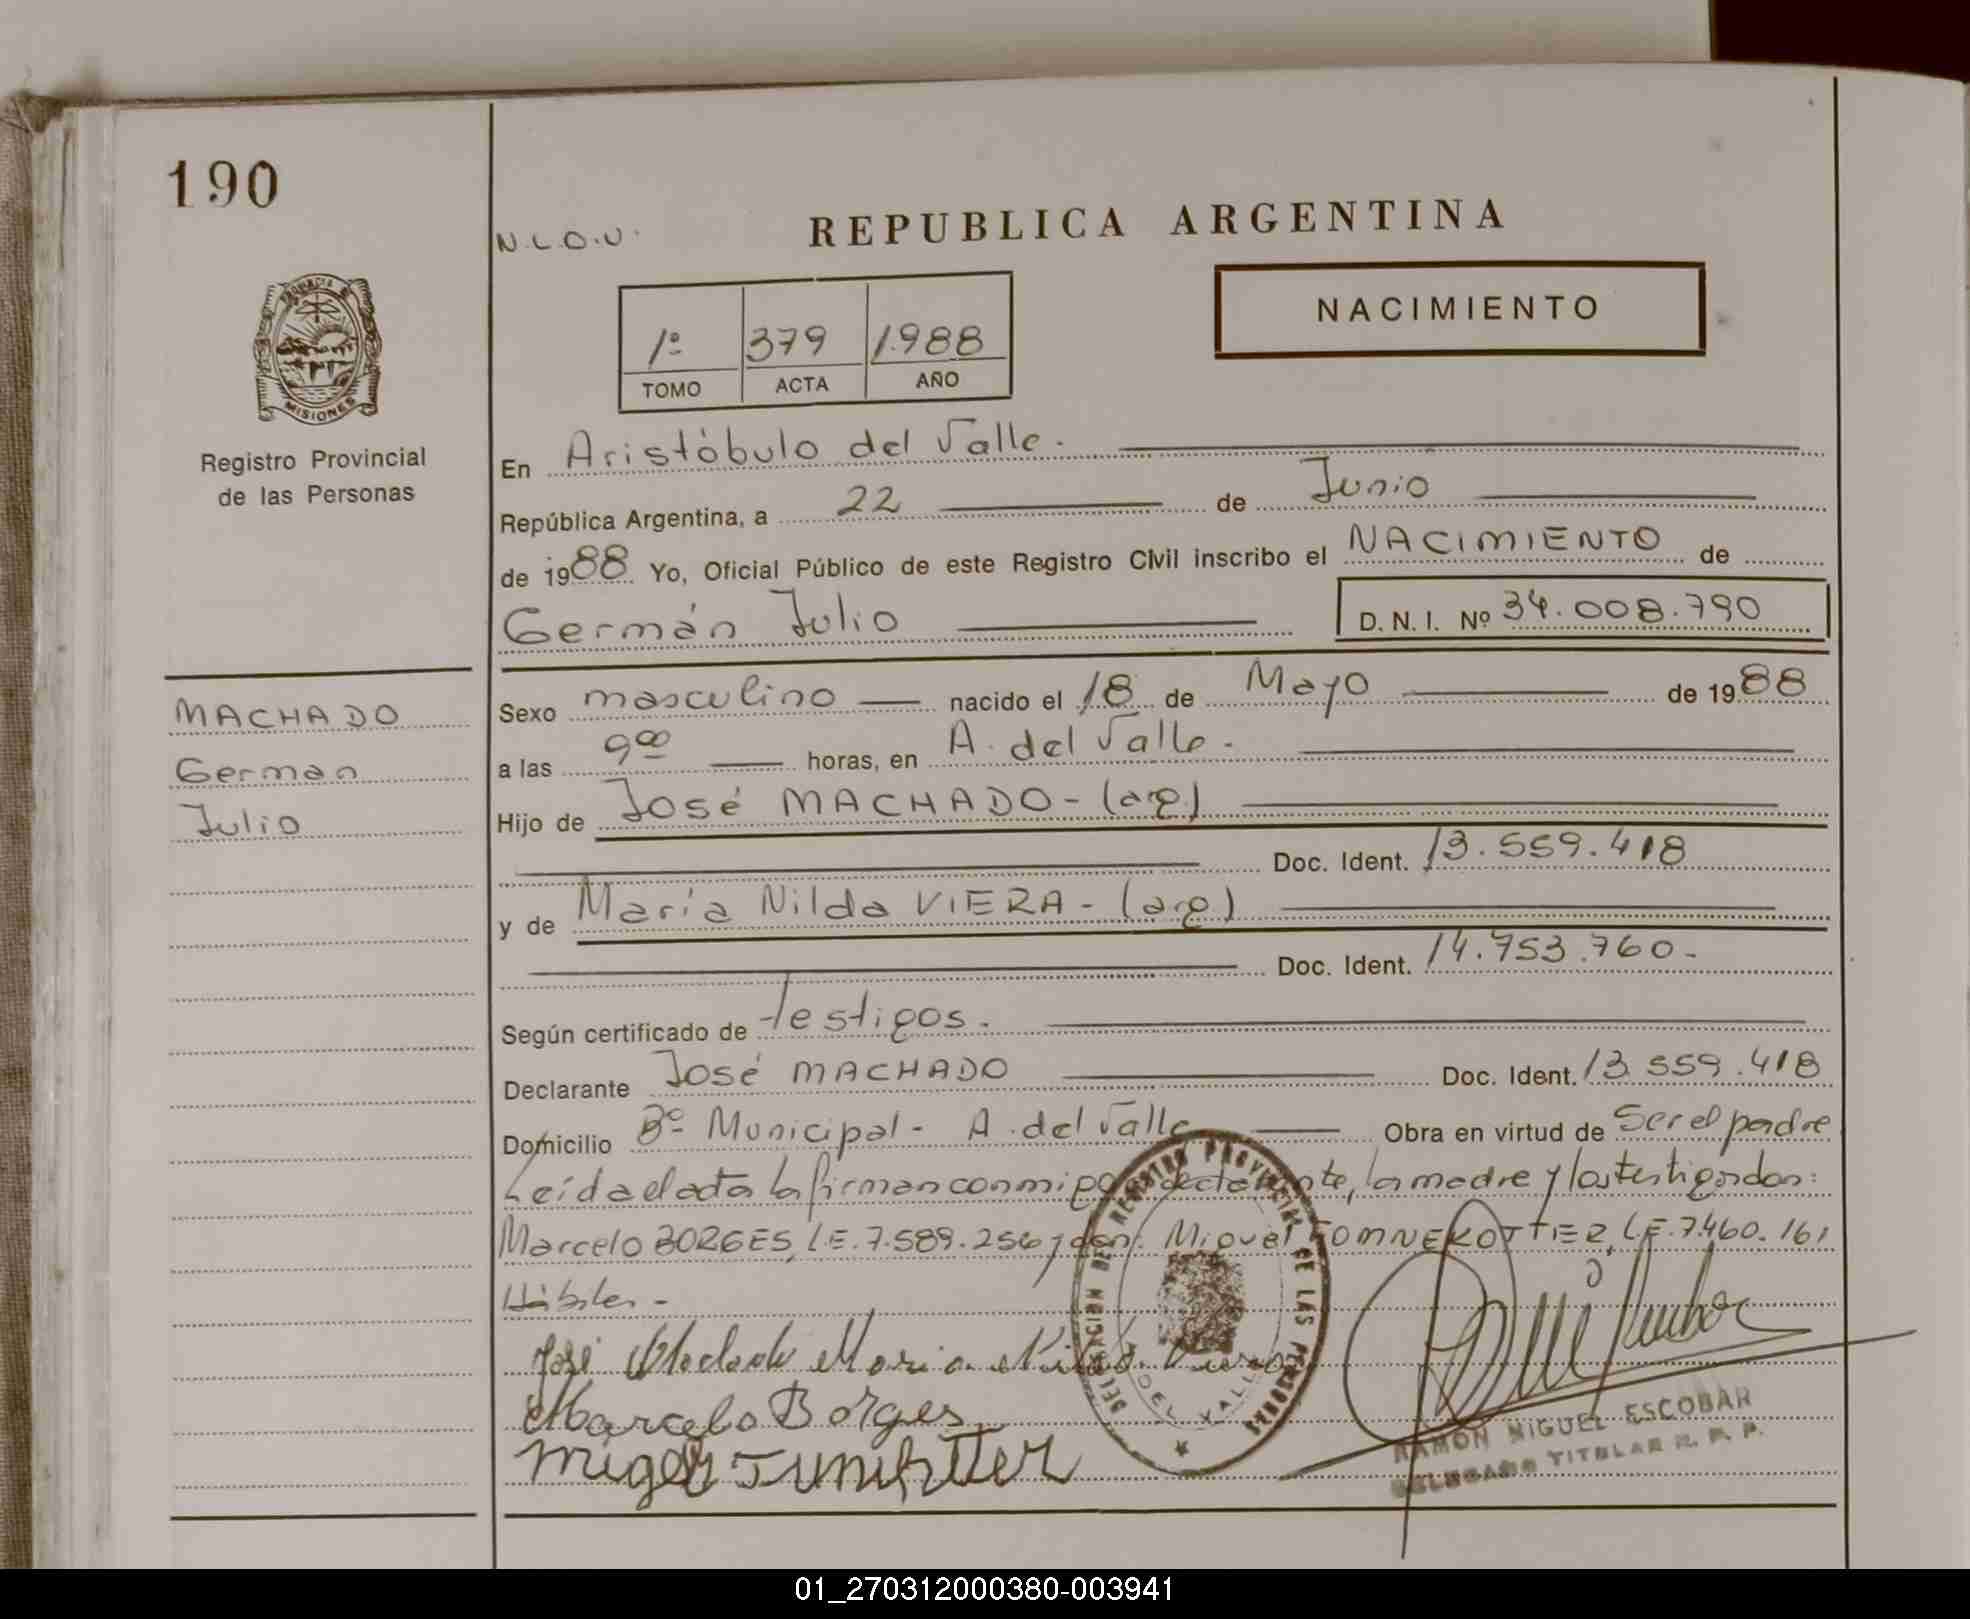 190
N.L.O.U.
REPUBLICA ARGENTINA
NACIMIENTO
1º 379 1.988
TOMO ACTA AÑO
PROVINCIA DE
MISIONES
Registro Provincial
de las Personas
En Aristóbulo del Valle.
República Argentina, a 22 de Junio
de 1988 Yo, Oficial Público de este Registro Civil inscribo el NACIMIENTO de
Germán Julio D.N.I. Nº 34.008.790
MACHADO
German
Julio
Sexo masculino nacido el 18 de Mayo de 1988
a las 9 00 horas, en A. del Valle.
Hijo de José MACHADO - (arg)
Doc. Ident. 13.559.418
y de María Nilda VIERA - (arg)
Doc. Ident. 14.753.760.-
Según certificado de testigos.
Declarante José MACHADO Doc. Ident. 13.559.418
Domicilio Bº Municipal - A. del Valle Obra en virtud de Ser el padre
Leída el acta la firman conmigo declarante, la madre y los testigos don:
Marcelo BORGES, L.E. 7.589.256 y don: Miguel L.E. 7.460.161
Hábiles -
José Machado Maria Nilda Viera
Marcelo Borges
Miguel
DELEGACION DEL REGISTRO PROVINCIAL DE LAS PERSONAS
DEL VALLE
RAMON MIGUEL ESCOBAR
DELEGADO TITULAR R. P. P.
01_270312000380-003941